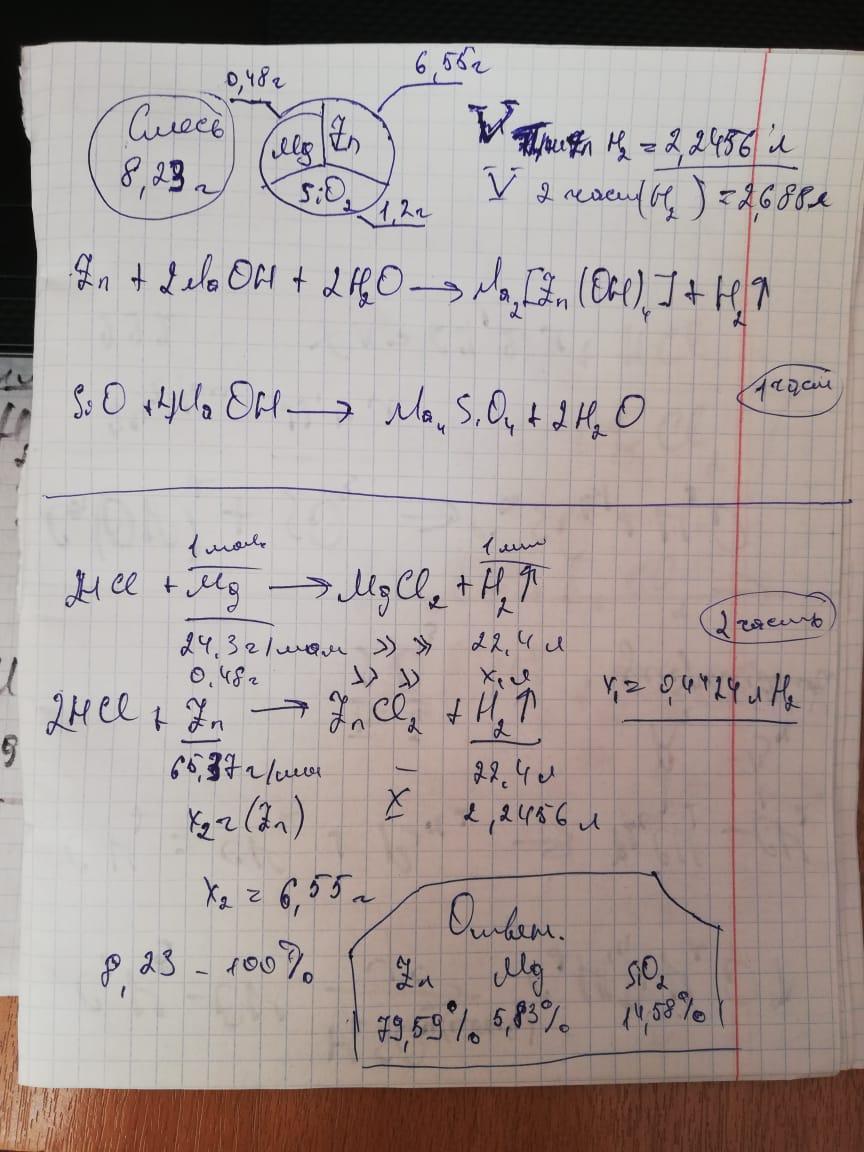 0,48г 6,55г
Смесь Mg Zn V H₂ = 2,2456 л
8,23 г SiO₂ 1,2г V 2 части(H₂) = 2,688л
Zn + 2NaOH + 2H₂O → Na₂[Zn(OH)₄] + H₂↑
1 части
SiO + 4Na OH → Na₄ SiO₄ + 2H₂O
1 моль 1 моль
2HCl + Mg → MgCl₂ + H₂↑
2 часть
24,3г/моль » » 22,4 л
0,48г » » x₁ л
x₁ = 0,4424 л H₂
2HCl + Zn → ZnCl₂ + H₂↑
65,37г/моль — 22,4 л
x₂ г (Zn) X 2,2456 л
x₂ = 6,55 г
8,23 - 100%
Ответ.
Zn Mg SiO₂
79,59% 5,83% 14,58%